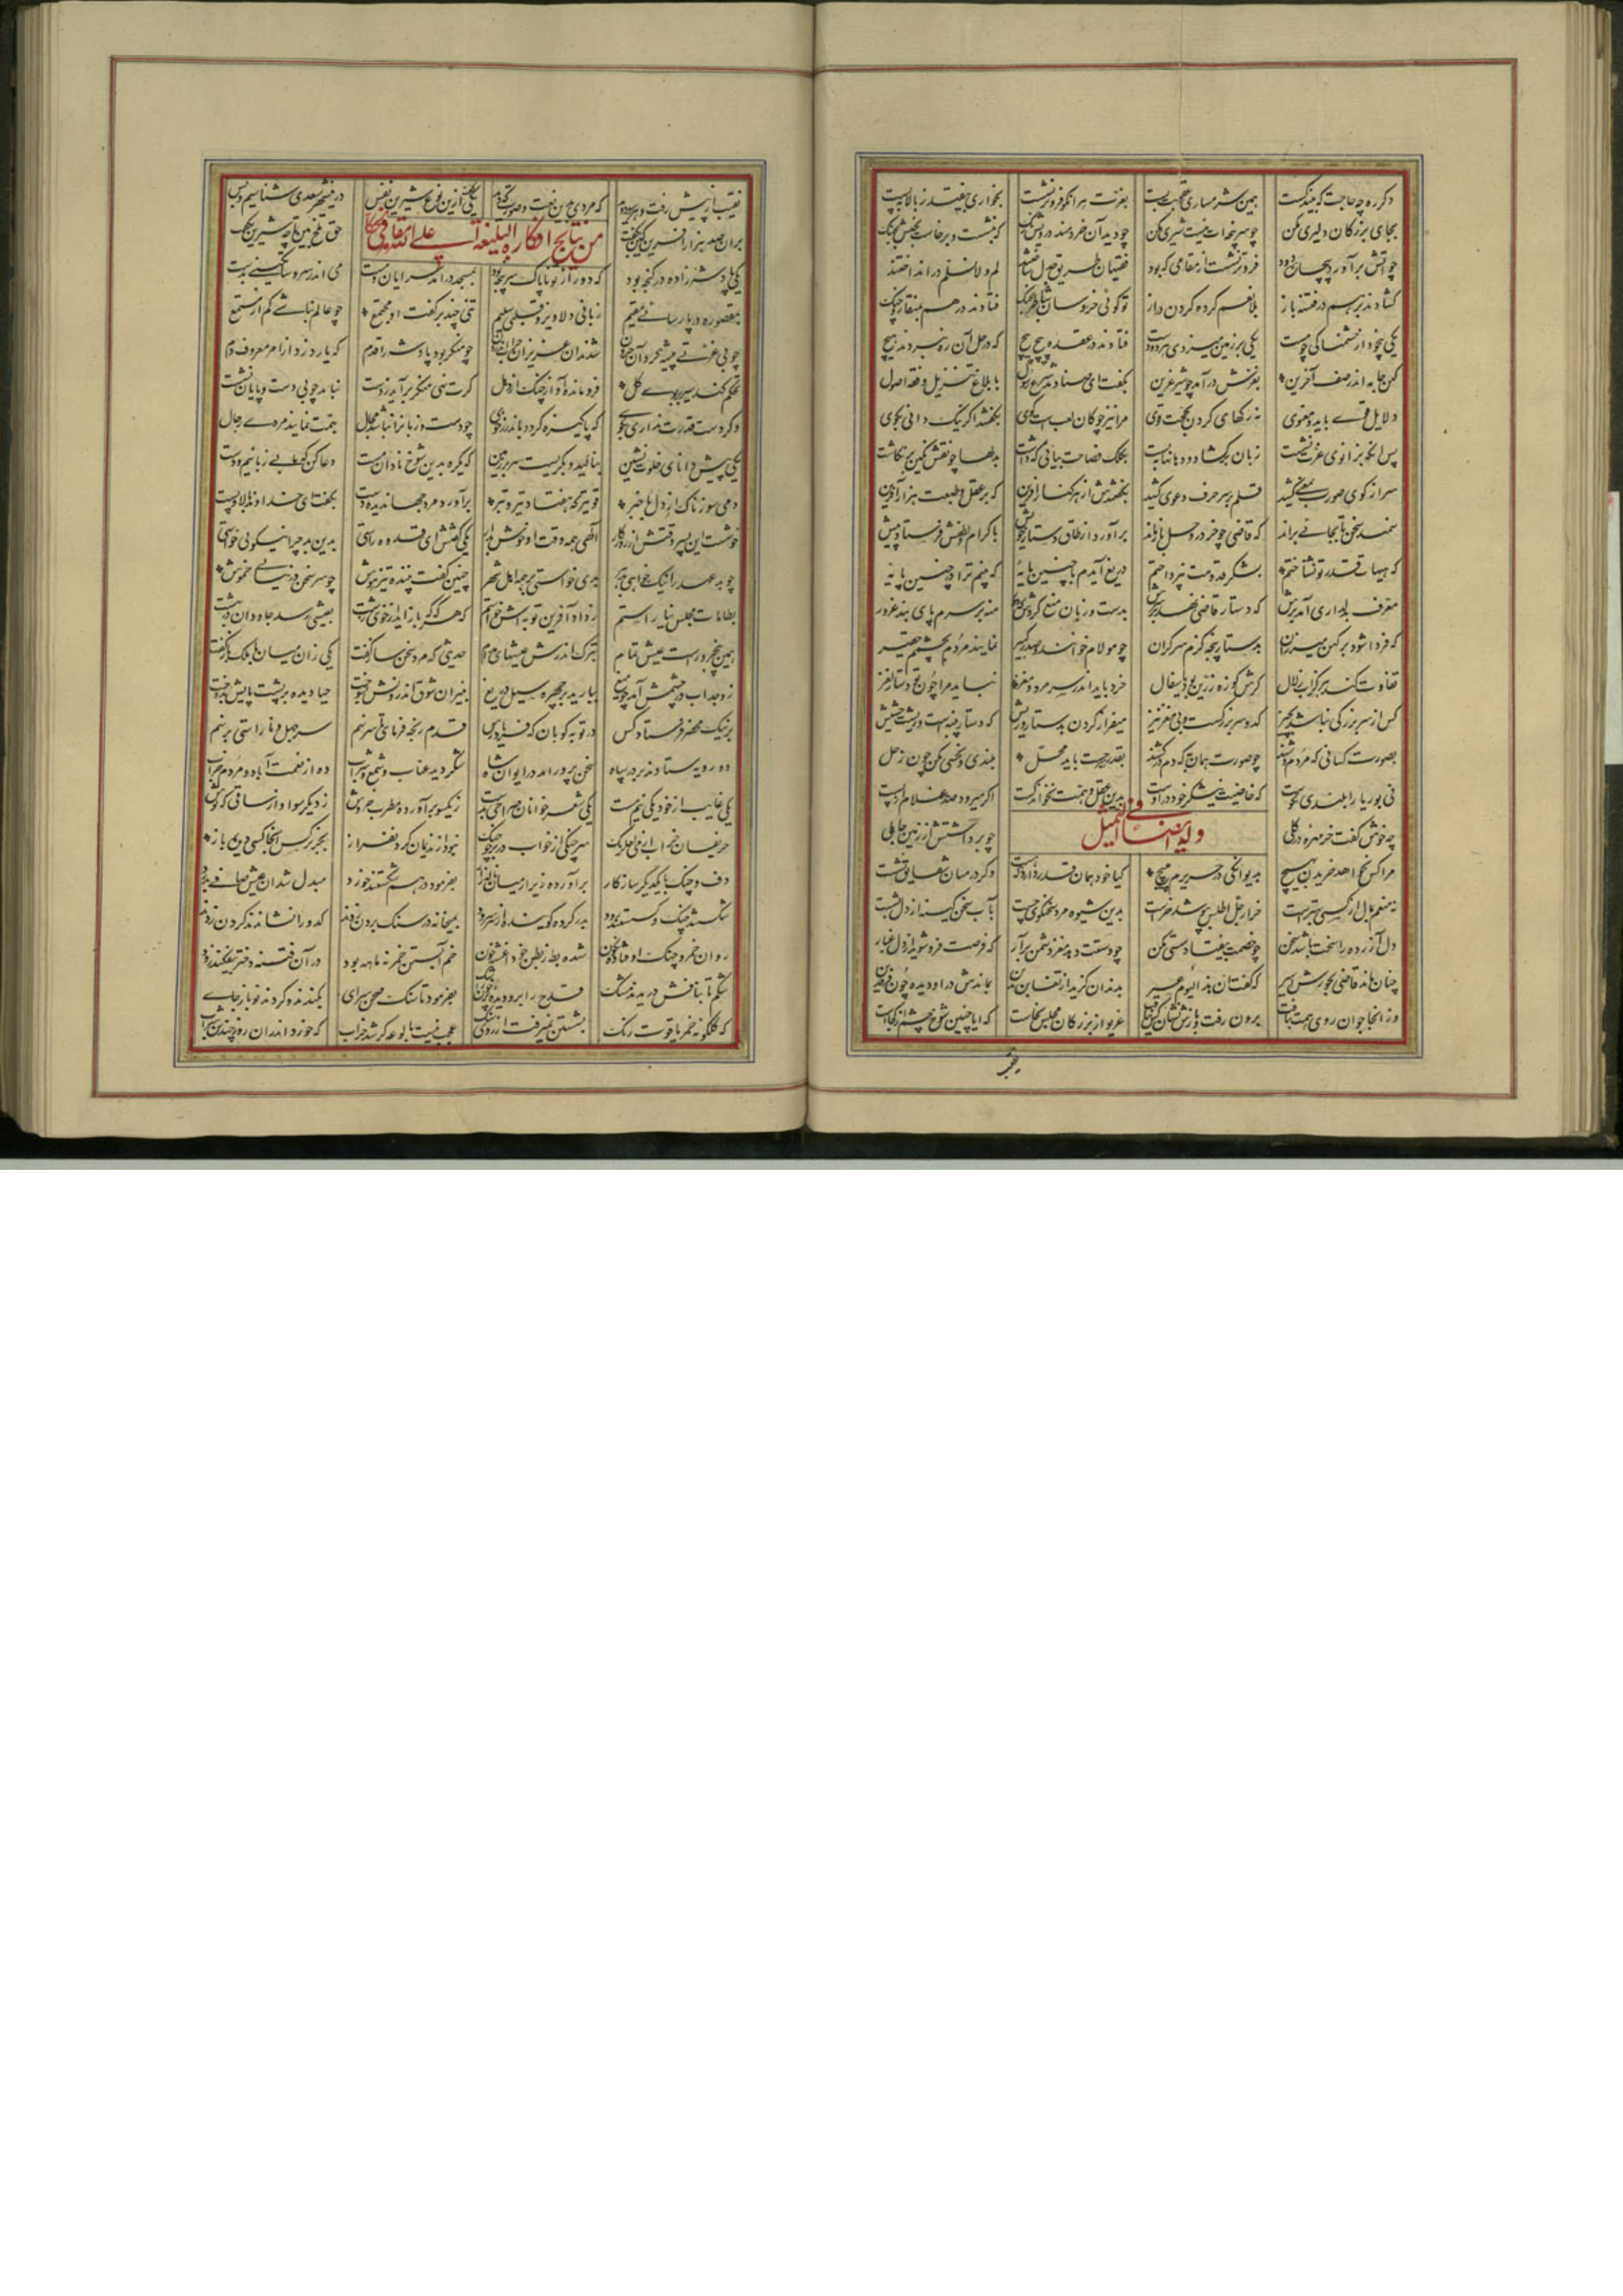 دکر ره چه حاجت که بیند کست همین شرمساری عقوبت بست بعزت هر انکو فروتر نشست بخواری نیفتد ز بالا ببست
بجای بزرکان دلیری مکن چو سرپنجه ات نیست شیری مکن چو دید آن خردمند درویش رنک که بنشست و برخاست بختش بجنک
چو آتش برآورد بیچاره دود فروتر نشست از مقامی که بود فقیهان طریق جدل ساختند لم و لا نسلم در انداختند
کشادند بر هم در فتنه باز بلا و نعم کرده کردن دراز تو کوئی خروسان شاطر بجنک فتادند در هم بمنقار و چنک
یکی بیخود از خشمناکی چو مست یکی بر زمین میزدی هر دو دست فتادند در عقده پیچ پیچ که در حل آن ره نبردند هیچ
کهن جامه اندر صف آخرین بغرش درآمد چو شیر عرین بکفت ای صنادید شرع رسول بابلاغ تنزیل و فقه و اصول
دلایل قوی باید و معنوی نه رکهای کردن بحجت قوی مرا نیز چوکان لعب است و کوی بکفتند اکر نیک دانی بکوی
پس انکه بزانوی عزت نشست زبان برکشاد و دهانها ببست بکلک فصاحت بیانی که داشت بدلها چو نقش نکین بر نکاشت
سر از کوی صورت بمعنی کشید قلم بر سر حرف دعوی کشید بکفتندش از هر کنار آفرین که بر عقل و طبعت هزار آفرین
سمند سخن تا بجائی براند که قاضی چو خر در وحل باز ماند برآورد از طاق دستار خویش باکرام و لطفش فرستاد پیش
که هیهات قدر تو نشناختم بشکر قدومت نپرداختم دریغ آیدم با چنین مایه که بینم ترا در چنین پایه
معرف بدلداری آمد برش که دستار قاضی نهد بر سرش بدست و زبان منع کردش که دور منه بر سرم پای بند غرور
که فردا شود بر کهن میزران بدستار پنجه کزم سر کران چو مولام خوانند و صدر کبیر نمایند مردم بچشمم حقیر
تفاوت کند هرکز آب زلال کرش کوزه زرین بود یا سفال خرد باید اندر سر مرد و مغز نباید مرا چون تو دستار نغز
کس از سر بزرکی نباشد بچیز کدو سر بزرکست و بی مغز نیز میفراز کردن بدستار و ریش که دستار پنبه است و ریشت حشیش
بصورت کسانی که مردم وشند چو صورت همان به که دم درکشند بقدر هنر جست باید محل بلندی و نحسی مکن چون زحل
نی بوریا را بلندی نکوست که خاصیت نیشکر خود در اوست بدین عقل و همت نخوانم کست اکر میرود صد غلام از پست
وله ایضا فی التمثیل
چه خوش کفت خرمهره در کلی چو برداشتش از زمین جاهلی
مرا کس نخواهد خریدن بهیچ بدیوانکی در حریرم مپیچ کیا خود همان قدر دارد که هست وکر در میان شقایق نشست
نه منعم بمال از کسی بهتر است خر ار جل اطلس بپوشد خر است بدین شیوه مرد سخنکوی چست بآب سخن کینه از دل بشست
دل آزرده را سخت باشد سخن چو خصمت بیفتاد سستی مکن چو دستت دهد مغز دشمن برآر که فرصت فرو شوید از دل غبار
چنان ماند قاضی بجورش اسیر که کفت ان هذا لیوم عسیر بدندان کزید از تغابن یدین بماندش در او دیده چون فرقدین
وز انجا جوان روی همت بتافت برون رفت و بازش نشان کس نیافت غریو از بزرکان مجلس بخاست که ایا چنین شوخ چشم از کجاست
نقیب
نقیب از پیش رفت و هر سو دوید که مردی بدین نعت و صورت که دید یکی کفت ازین نوع شیرین نفس در این شهر سعدی شناسیم و بس
بران صد هزار آفرین کین بکفت حق تلخ بین تا چه شیرین بکفت
من نتایج افکاره البلیغة
یکی پادشه زاده در کنجه بود که دور از تو ناپاک سرپنجه بود بمسجد درآمد سرایان و مست می اندر سر و ساتکینی بدست
بمقصوره در پارسائی مقیم زبانی دلاویز و قلبی سلیم تنی چند بر کفت او مجتمع چو عالم نباشی کم از مستمع
چو بی عزتی پیشه کرد آن حرون شدند آن عزیزان خراب اندرون چو منکر بود پادشه را قدم که یارد زد از امر معروف دم
تحکم کند سیر بر بوی کل فرو ماند آواز چنک از دهل کرت نهی منکر برآید ز دست نباید چو بی دست و پایان نشست
وکر دست قدرت نداری بکوی که پاکیزه کردد باندرز خوی چو دست و زبان را نباشد مجال بهمت نمایند مردی رجال
یکی پیش دانای خلوت نشین بنالید و بکریست سر بر زمین که یکره بدین شوخ نادان مست دعا کن که ما بی زبانیم و دست
دمی سوزناک از دل با خبر قویتر که هفتاد تیغ و تبر برآورد مرد جهاندیده دست بکفت ای خداوند بالا و پست
خوشست این پسر وقتش از روزکار الهی همه وقت او خوش بدار یکی کفتش ای قدوه راستی بدین بد چرا نیکوئی خواستی
چو بد عهد را نیک خواهی ز بهر بدی خواستی بر همه اهل شهر چنین کفت بیننده تیز هوش چو سر سخن در نیابی خموش
بطامات مجلس نیاراستم ز داد آفرین توبه اش خواستم که هر که که باز آید از خوی زشت بعیشی رسد جاودان در بهشت
همین پنج روزست عیش مدام بترک اندرش عیشهای مدام حدیثی که مرد سخن ساز کفت یکی زان میان با ملک باز کفت
ز وجد آب در چشمش آمد چو میغ ببارید بر چهره سیل دریغ بنیران شوق اندرونش بسوخت حیا دیده بر پشت پایش بدوخت
بر نیک محضر فرستاد کس در توبه کوبان که فریاد رس قدم رنجه فرمای تا سر نهم سر جهل و ناراستی بر نهم
دو رویه ستادند بر در سپاه سخن پرور آمد در ایوان شاه شکر دید و عناب و شمع و شراب ده از نعمت آباد و مردم خراب
یکی غایب از خود یکی نیم مست یکی شعر خوانان صراحی بدست ز یکسو برآورده مطرب خروش ز دیکر سو آواز ساقی که نوش
حریفان خراب از می لعل رنک سر چنکی از خواب در بر چو چنک نبود از ندیمان کردن فراز بجز نرکس انجا کسی دیده باز
دف و چنک با یکدیکر سازکار برآورده زیر از میان ناله زار بفرمود و درهم شکستند خورد مبدل شد آن عیش صافی بدرد
شکستند چنک و کسستند رود بدر کرد کوینده از سر سرود بمیخانه در سنک بر دن زدند کدو را نشاندند و کردن زدند
روان خمر و چنک اوفتاده نکون شده بط ز بط خون خم آبستن خمر نه ماهه بود در آن فتنه دختر بیفکند زود
شکم تا بنافش دریدند مشک قدح را برو دیده خون بفرمود تا سنک صحن سرای بکندند و کردند نو باز جای
که کلکونه خمر یاقوت رنک بشستن نمیرفت از روی سنک عجب نیست بالوعه کر شد خراب که خورد اندران روز چندان شراب